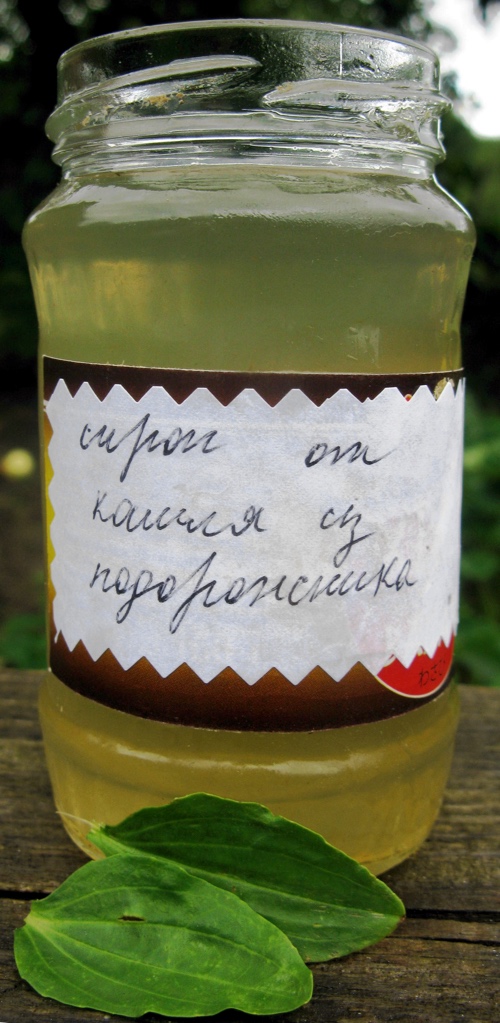 сироп от
кашля из
подорожника